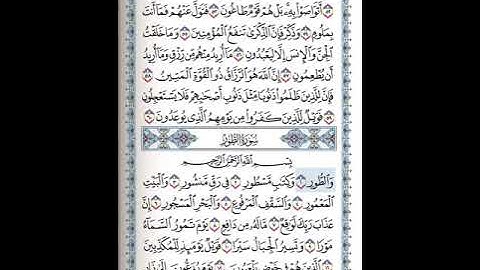 ٥٢ أَتَوَاصَوْا۟ بِهِۦ ۚ بَلْ هُمْ قَوْمٌ طَاغُونَ ٥٣ فَتَوَلَّ عَنْهُمْ فَمَآ أَنتَ
بِمَلُومٍ ٥٤ وَذَكِّرْ فَإِنَّ ٱلذِّكْرَىٰ تَنفَعُ ٱلْمُؤْمِنِينَ ٥٥ وَمَا خَلَقْتُ
ٱلْجِنَّ وَٱلْإِنسَ إِلَّا لِيَعْبُدُونِ ٥٦ مَآ أُرِيدُ مِنْهُم مِّن رِّزْقٍ وَمَآ أُرِيدُ
أَن يُطْعِمُونِ ٥٧ إِنَّ ٱللَّهَ هُوَ ٱلرَّزَّاقُ ذُو ٱلْقُوَّةِ ٱلْمَتِينُ ٥٨
فَإِنَّ لِلَّذِينَ ظَلَمُوا۟ ذَنُوبًا مِّثْلَ ذَنُوبِ أَصْحَٰبِهِمْ فَلَا يَسْتَعْجِلُونِ
٥٩ فَوَيْلٌ لِّلَّذِينَ كَفَرُوا۟ مِن يَوْمِهِمُ ٱلَّذِى يُوعَدُونَ ٦٠
سُورَةُ الطُّورِ
بِسْمِ ٱللَّهِ ٱلرَّحْمَٰنِ ٱلرَّحِيمِ
وَٱلطُّورِ ١ وَكِتَٰبٍ مَّسْطُورٍ ٢ فِى رَقٍّ مَّنشُورٍ ٣ وَٱلْبَيْتِ
ٱلْمَعْمُورِ ٤ وَٱلسَّقْفِ ٱلْمَرْفُوعِ ٥ وَٱلْبَحْرِ ٱلْمَسْجُورِ ٦ إِنَّ
عَذَابَ رَبِّكَ لَوَٰقِعٌ ٧ مَّا لَهُۥ مِن دَافِعٍ ٨ يَوْمَ تَمُورُ ٱلسَّمَآءُ
مَوْرًا ٩ وَتَسِيرُ ٱلْجِبَالُ سَيْرًا ١٠ فَوَيْلٌ يَوْمَئِذٍ لِّلْمُكَذِّبِينَ
١١ ٱلَّذِينَ هُمْ فِى خَوْضٍ يَلْعَبُونَ ١٢ يَوْمَ يُدَعُّونَ إِلَىٰ نَارِ